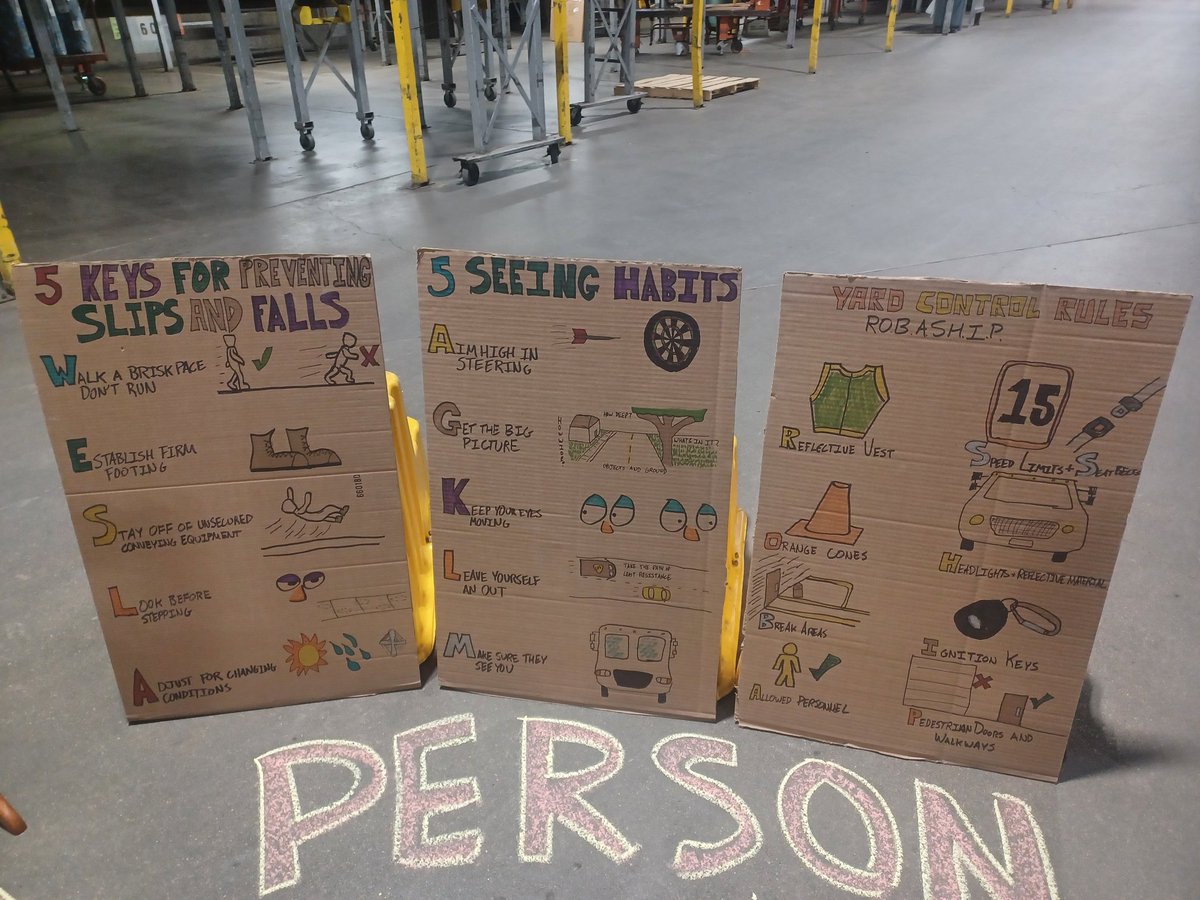 60
5 KEYS FOR PREVENTING
SLIPS AND FALLS
WALK A BRISK PACE
DON'T RUN
ESTABLISH FIRM
FOOTING
STAY OFF OF UNSECURED
CONVEYING EQUIPMENT
LOOK BEFORE
STEPPING
ADJUST FOR CHANGING
CONDITIONS
5 SEEING HABITS
AIM HIGH IN
STEERING
GET THE BIG
PICTURE
HOW DEEP?
WHATS IN IT?
OBJECTS AND GROUND
KEEP YOUR EYES
MOVING
LEAVE YOURSELF
AN OUT
TAKE THE PATH OF
LEAST RESISTANCE
MAKE SURE THEY
SEE YOU
YARD CONTROL RULES
R.O.B.A.S.H.I.P.
REFLECTIVE VEST
ORANGE CONES
BREAK AREAS
ALLOWED PERSONNEL
15
SPEED LIMITS + SEAT BELTS
HEADLIGHTS + REFLECTIVE MATERIAL
IGNITION KEYS
PEDESTRIAN DOORS AND
WALKWAYS
PERSON